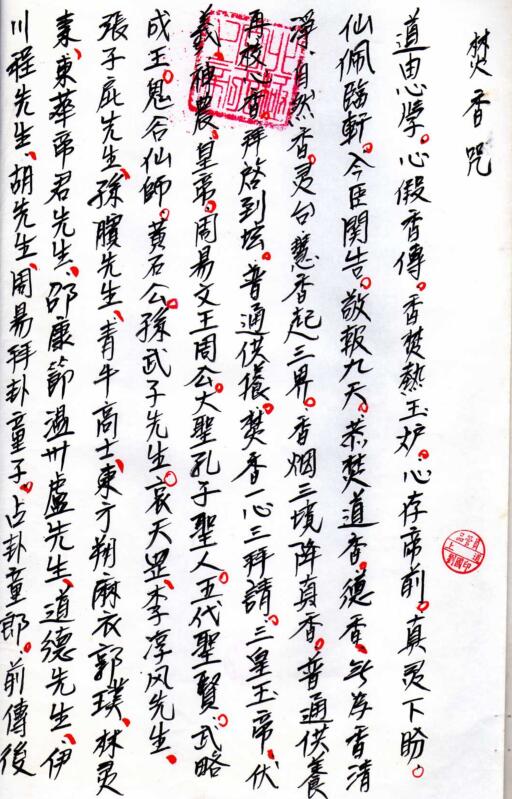 焚香咒
道由心學。心假香傳。香焚熱玉炉。心存帝前。真灵下盼。
仙佩臨軒。今臣関告。敬報九天。恭焚道香。德香。无为香清
淨。自然香。灵台慧香起三界。香烟三境降真香。普通供養
再校心香拜啓到坛。普通供養。焚香一心三拜請。三皇玉帝、伏
羲神農。皇帝。周易文王周公。大聖孔子聖人。五代聖賢。武略
成王。鬼谷仙師。黄石公。孫武子先生。袁天罡、李淳风先生、
張子房先生、孫臏先生、青牛高士、東方朔麻衣郭璞、林灵
素、東華帝君先生、邵康節温州盧先生、道德先生、伊
川程先生、胡先生、周易拜卦童子。占卦童郎、前傳後